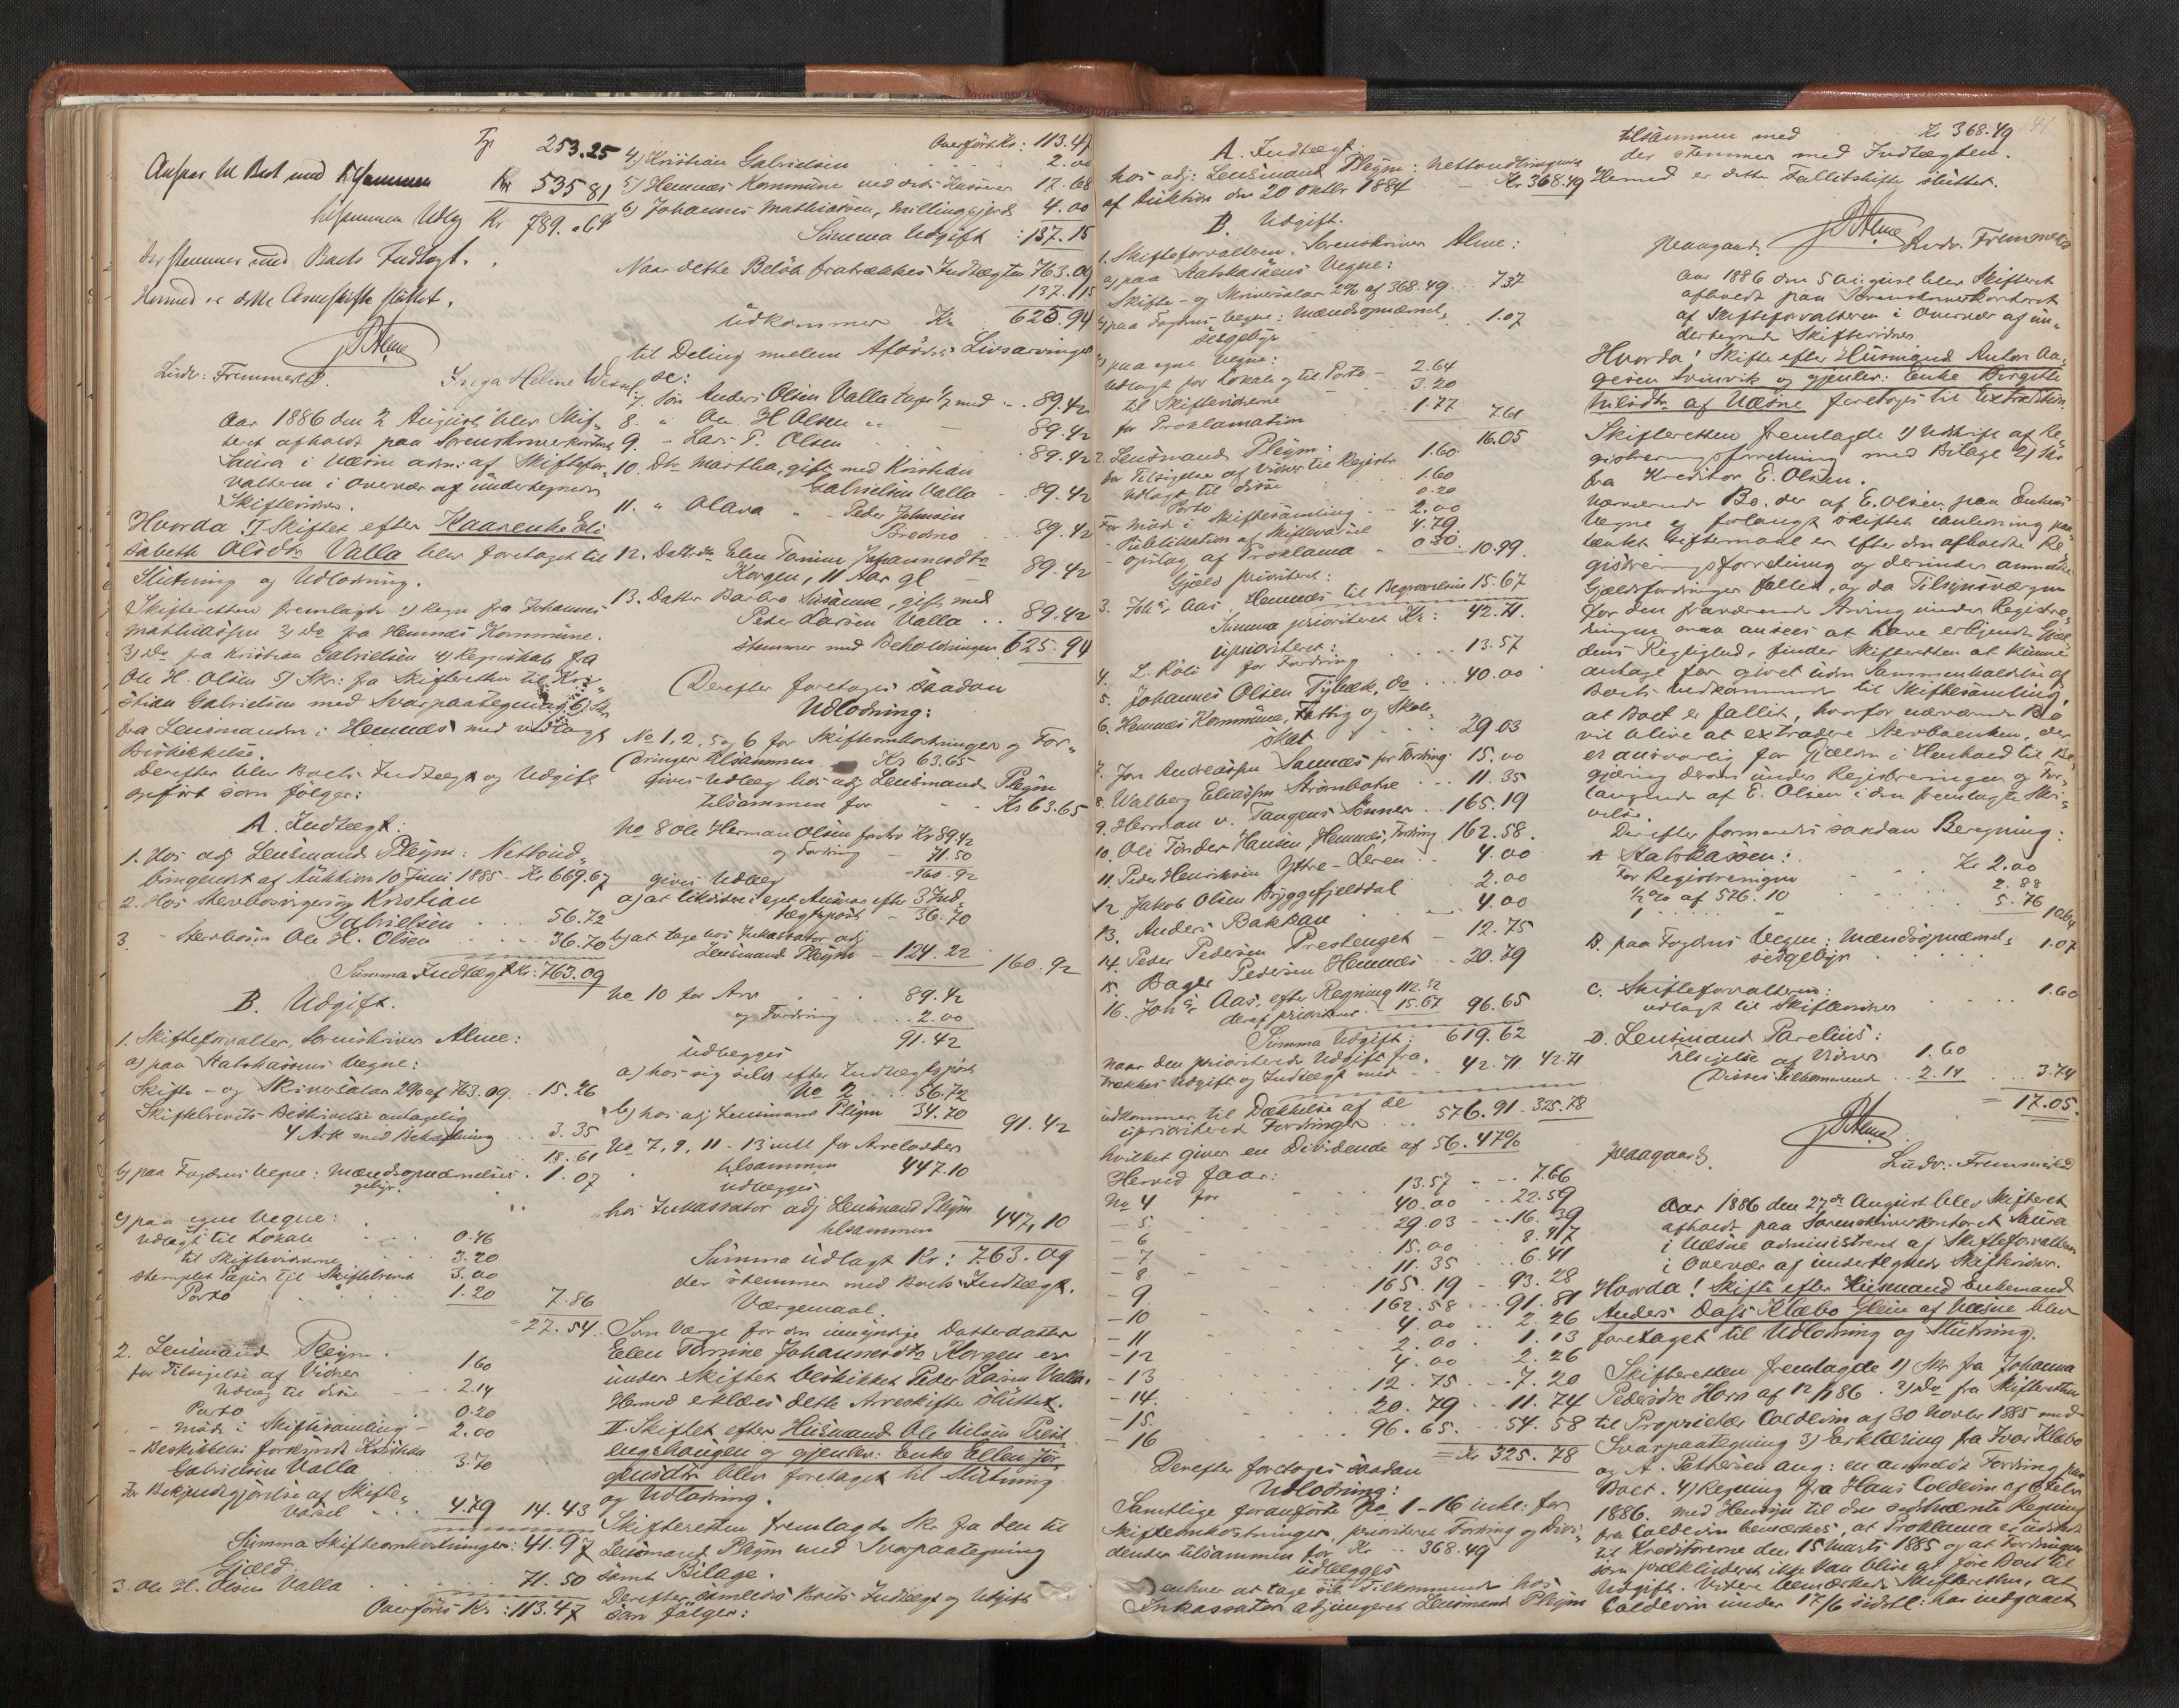 Tp 253.25
Anpart til Boet med tilsammen Kr 535 81
tilsammen Udlg Kr 789.06
der stemmer med Boets Indtægt.
Hermed er dette Arveskifte sluttet.
Ludv: Fremmerlid. Inga Heline
Aar 1886 den 2 August blev Skif-
teret afholdt paa Sorenskriverkontoret
Saura i Næsne adm: af Skiftefor-
valteren i Overvær af undertegnede
Skiftevidner.
Hvorda! I Skiftet efter Kaarenke Eli
sabeth Olsdtr Valla blev foretaget til
Slutning og Udlodning.
Skifteretten fremlagde 1) Regn fra Johannes
Mathiassen 2) Do fra Hemnæs Kommune.
3) Do fra Kristian Gabrielsen 4) Regnskab fra
Ole H. Olsen 5) Skr: fra Skifteretten til Kri-
stian Gabrielsen med Svarpaategning 6) Skr
fra Lensmanden i Hemnæs med vedlagt
Beskikkelse.
Derefter blev Boets Indtægt og Udgift
opført som følger:
A. Indtægt:
1. Hos adj Lensmand Pleym: Nettoud-
bringendet af Auktion 10 Juni 1885 - Kr 669.67
2. Hos Stervbosørgeren Kristian
Gabrielsen . . 56.72
3. - Stervbosøn Ole H. Olsen . . . . 36.70
Summa Indtægt Kr: 763.09
B. Udgift.
1. Skifteforvalter, Sorenskriver Alme:
a) paa Statskassens Vegne:
Skifte- og Skriversalær 2% af 763.09 . . 15.26
Skiftebrevets Beskrivelse antagelig
4 Ark med Behæftning . . . 3.35
18.61
b) paa Fogdens Vegne: Mændsopnævnelses . 1.07
gebyr.
c) paa egne Vegne:
Udlagt til Lokale . . . . 0.46
til Skiftevidnerne . . . 3.20
stemplet Papir til Skiftebrevet 3.00
Porto . . . . 1.20 7.86
= 27.54.
2. Lensmand Pleym.
for Tilsigelse af Vidner . 1.60
Udlæg til disse - - . 2.14
Porto . . 0.20
- Møde i Skiftesamling - 2.00
- Beskikkelse forkyndt Kristian
Gabrielsen Valla . . 3.70
for Bekjendtgjørelse af Skifte-
varsel . . . 4.79 14.43
Summa Skifteomkostninger: 41.97
Gjæld.
3. Ole H. Olsen Valla . . . . 71.50
Overføres Kr: 113.47
Overført Kr: 113.47
4) Kristian Gabrielsen . . . . . 2.00
5) Hemnæs Kommune ved dets Kasserer 17.68
6) Johannes Mathiassen, Millingsjord 4.00
Summa Udgift : 137.15
Naar dette Beløb fratrækkes Indtægten 763.09
137.15
Udkommer Kr 625.94
til Deling mellem Afdødes Livsarvinger
sc:
7. Søn Anders Olsen Valla tager 1/7 med - . 89.42
8. " Ole H Olsen " — 89.42
9. - Lars P. Olsen . . 89.42
10. Dtr Martha, gift med Kristian
Gabrielsen Valla - 89.42
11. " Olava " - Peder Johnsen
Bredmo . . 89.42
12. Datterdtr Elen Tomine Johannesdtr
Korgen, 11 Aar gl — 89.42
13. Datter Barbro Susanne, gift med
Peder Larsen Valla . . 89.42
Stemmer med Beholdningen 625.94
Derefter foretoges saadan
Udlodning:
No 1, 2, 5 og 6 for Skifteomkostninger og For-
dringer tilsammen Kr 63.65
gives Udlæg hos adj Lensmand Pleym
tilsammen for - - Kr 63.65
No 8 Ole Herman Olsen for Arv Kr 89.42
og Fordring — 71.50
gives Udlæg — 160.92
a) at likvidere i eget Ansvar efter 3 Ind-
tægtspost - 36.70
b) at tage hos Inkassator adj
Lensmand Pleym - 124.22 160.92
No 10 for Arv . . 89.42
og Fordring . . 2.00
udlægges 91.42
a) hos sig selv efter Indtægtspost
No 2 . . 56.72
b) hos adj Lensmand Pleym 34.70 91.42
No 7, 9, 11 - 13 incl for Arvelodder
tilsammen 447.10
udlægges
hos Inkassator adj Lensmand Pleym
tilsammen 447,10
Summa udlagt Kr: 763.09
der stemmer med Boets Indtægt.
Værgemaal.
Som Værge for den umyndige Datterdatter
Elen Tomine Johannesdtr Korgen er
under Skiftet beskikket Peder Larsen Valla.
Hermed erklæres dette Arveskifte sluttet.
II Skiftet efter Husmand Ole Nilsen Prest
engshaugen og gjenlev: Enke Ellen Jør
gensdtr blev foretaget til Slutning
og Udlodning.
Skifteretten fremlagde Skr fra den til
Lensmand Pleym med Svarpaategning
samt Bilage.
Derefter samledes Boets Indtægt og Udgift
som følger:
A. Indtægt.
hos adj: Lensmand Pleym: Nettoudbringende
af Auktion den 20 Oktbr 1884 - - Kr 368.49
B. Udgift.
1. Skifteforvalteren. Sorenskriver Alme:
a) paa Statskassens Vegne:
Skifte- og Skriversalær 2% af 368.49 . . 7.37
b) paa Fogdens Vegne: Mændsopnævnel-
sesgebyr . . 1.07
c) paa egne Vegne:
Udlagt for Lokale og til Porto - 2.64
til Skiftevidnerne 3.20
for Proklamation . 1.77 7.61
16.05
2. Lensmand Pleym:
for Tilsigelse af Vidner til Registr 1.60
Udlagt til disse 1.60
Porto 0.20
For Møde i Skiftesamling . - 2.00
- Publikation af Skiftevarsel 4.79
- opslag af Proklama - 0.80. 10.99.
Gjæld prioriteret:
3. Johs Aas, Hemnæs til Begravelsen 15.67
Summa prioriteret Kr: 42.71.
uprioriteret:
4. L. Røli for Fordring . . . . 13.57
5. Johannes Olsen Tybæk, do . . . 40.00
6. Hemnæs Kommune, Fattig og Skole-
skat . . . 29.03
7. Jon Andreassen Sannæs for Fordring 15.00
8. Walberg Eliassen Strømbotne . . 11.35
9. Herman v. Tangens Sønner . . 165.19
10. Ole Tønder Hansen Hemnæs, Fordring 162.58.
11. Peder Henriksen Yttre-Leren . . 4.00
12 Jakob Olsen Bryggefjelddal . 2.00
13. Anders Bakkan . . . 4.00
14. Peder Pedersen Prestenget - 12.75
15. Bager Pedersen Hemnæs . . 20.79
16. Johs Aas, efter Regning 112.32
deraf prioriteret . 15.67 96.65
Summa Udgift: 619.62
naar den prioriterede Udgift fra-
trækkes Udgift og Indtægt med - . 42.71 42.71
udkommer til Dækkelse af de
uprioriterede Fordringer . . . 576.91 - 325.78
hvilket giver en Dividende af 56.47%
Herved faar:
No 4 for - - - 13.57 - - 7.66
- 5. 40.00 . . 22.59
- 6 29.03 - . 16.39
- 7 15.00 . . 8.47
- 8. 11.35 . . 6.41
- 9. 165.19 - 93.28
- 10 162.58 . . 91.81
- 11 4.00 . . 2.26
- 12 2.00 . 1.13
- 13 4.00 . . 2.26
- 14. 12.75 - - 7.20
- 15. 20.79 - - 11.74
- 16 96.65. . . 54.58
= Kr 325.78
Derefter foretoges saadan
Udlodning:
Samtlige foranførte No 1-16 inkl: for
Skifteomkostninger, prioriteret Fordring og Divi-
dender tilsammen for Kr . . 368.49
udlægges
enhver at tage sit Tilkommende hos
Inkassator adjungeret Lensmand Pleym
141
tilsammen med - - Kr 368.49
der stemmer med Indtægten.
Hermed er dette Fallitskifte sluttet.
Haagaard. Ludv. Fremmerlid
Aar 1886 den 5 August blev Skifteret
afholdt paa Sorenskriverkontoret
af Skifteforvalteren i Overvær af un-
dertegnede Skiftevidner
Hvorda! Skifte efter Husmand Anton Aa-
gesen Svinvik og gjenlev: Enke Birgitte
Nilsdtr af Næsne foretoges til Extradition.
Skifteretten fremlagde 1) Udskrift af Re-
gistreringsforretning med Bilage 2) Skr
fra Kreditor E. Olsen.
Nærværende Bo, der af E. Olsen paa Enkens
Vegne er forlangt skiftet i Anledning paa-
tænkt Giftermaal er efter den afholdte Re-
gistreringsforretning og derunder anmeldte
Gjældsfordringer fallit, og da Tilsynsværgen
for den fraværende Arving under Registre-
ringen maa ansees at have erkjendt Gjæl-
dens Rigtighed, finder Skifteretten at kunne
antage for givet uden Sammenkaldelse af
Boets Vedkommende til Skiftesamling,
at Boet er fallit, hvorfor nærværende Bo
vil blive at extradere Stervboenken, der
er ansvarlig for Gjælden i Henhold til Be-
gjæring derom under Registreringen og For-
langende af E. Olsen i den fremlagte Skri-
velse.
Derefter formeredes saadan Beregning:
A Statskassen:
For Registreringen . . . Kr 2.00
1/2 % af 576.10 . . . . . 2.88
1 . . . . " . . . . . 5.76 10.64
B. paa Fogdens Vegne: Mændsopnævnel-
sesgebyr . . . . 1.07
C. Skifteforvalteren:
udlagt til Skiftevidner . . . 1.60
D. Lensmand Parelius:
Tilsigelse af Vidner 1.60
Disses Tilkommende . . 2.14 . . . 3.74
= 17.05.
Haagaard. Ludv. Fremmerlid
Aar 1886 den 27de August blev Skifteret
afholdt paa Sorenskriverkontoret Saura
i Næsne administreret af Skifteforvalteren
i Overvær af undertegnede Skiftevidner.
Hvorda! Skifte efter Husmand Enkemand
Anders Dass Klæbo Glein af Næsne blev
foretaget til Udlodning og Slutning.
Skifteretten fremlagde 1) Skr fra Johanna
Pedersdtr Horn af 12/1 86. 2) Do fra Skifteretten
til Proprietær Coldevin af 30 Novbr 1885 med
Svarpaategning 3) Erklæring fra Ivar Klæbo
og A. Pettersen ang: en anmeldt Fordring paa
Boet. 4) Regning fra Hans Coldevin af
1886. med Hensyn til den sidstnævnte Regning
fra Coldevin bemærkes, at Proklama er udstedt
til Kreditorerne den 15 Marts 1885 og at Fordringen
som prækluderet ikke kan blive at føre Boet til
Udgift. Videre bemærkede Skifteretten, at
Coldevin under 17/6 sidstl: har vedgaaet